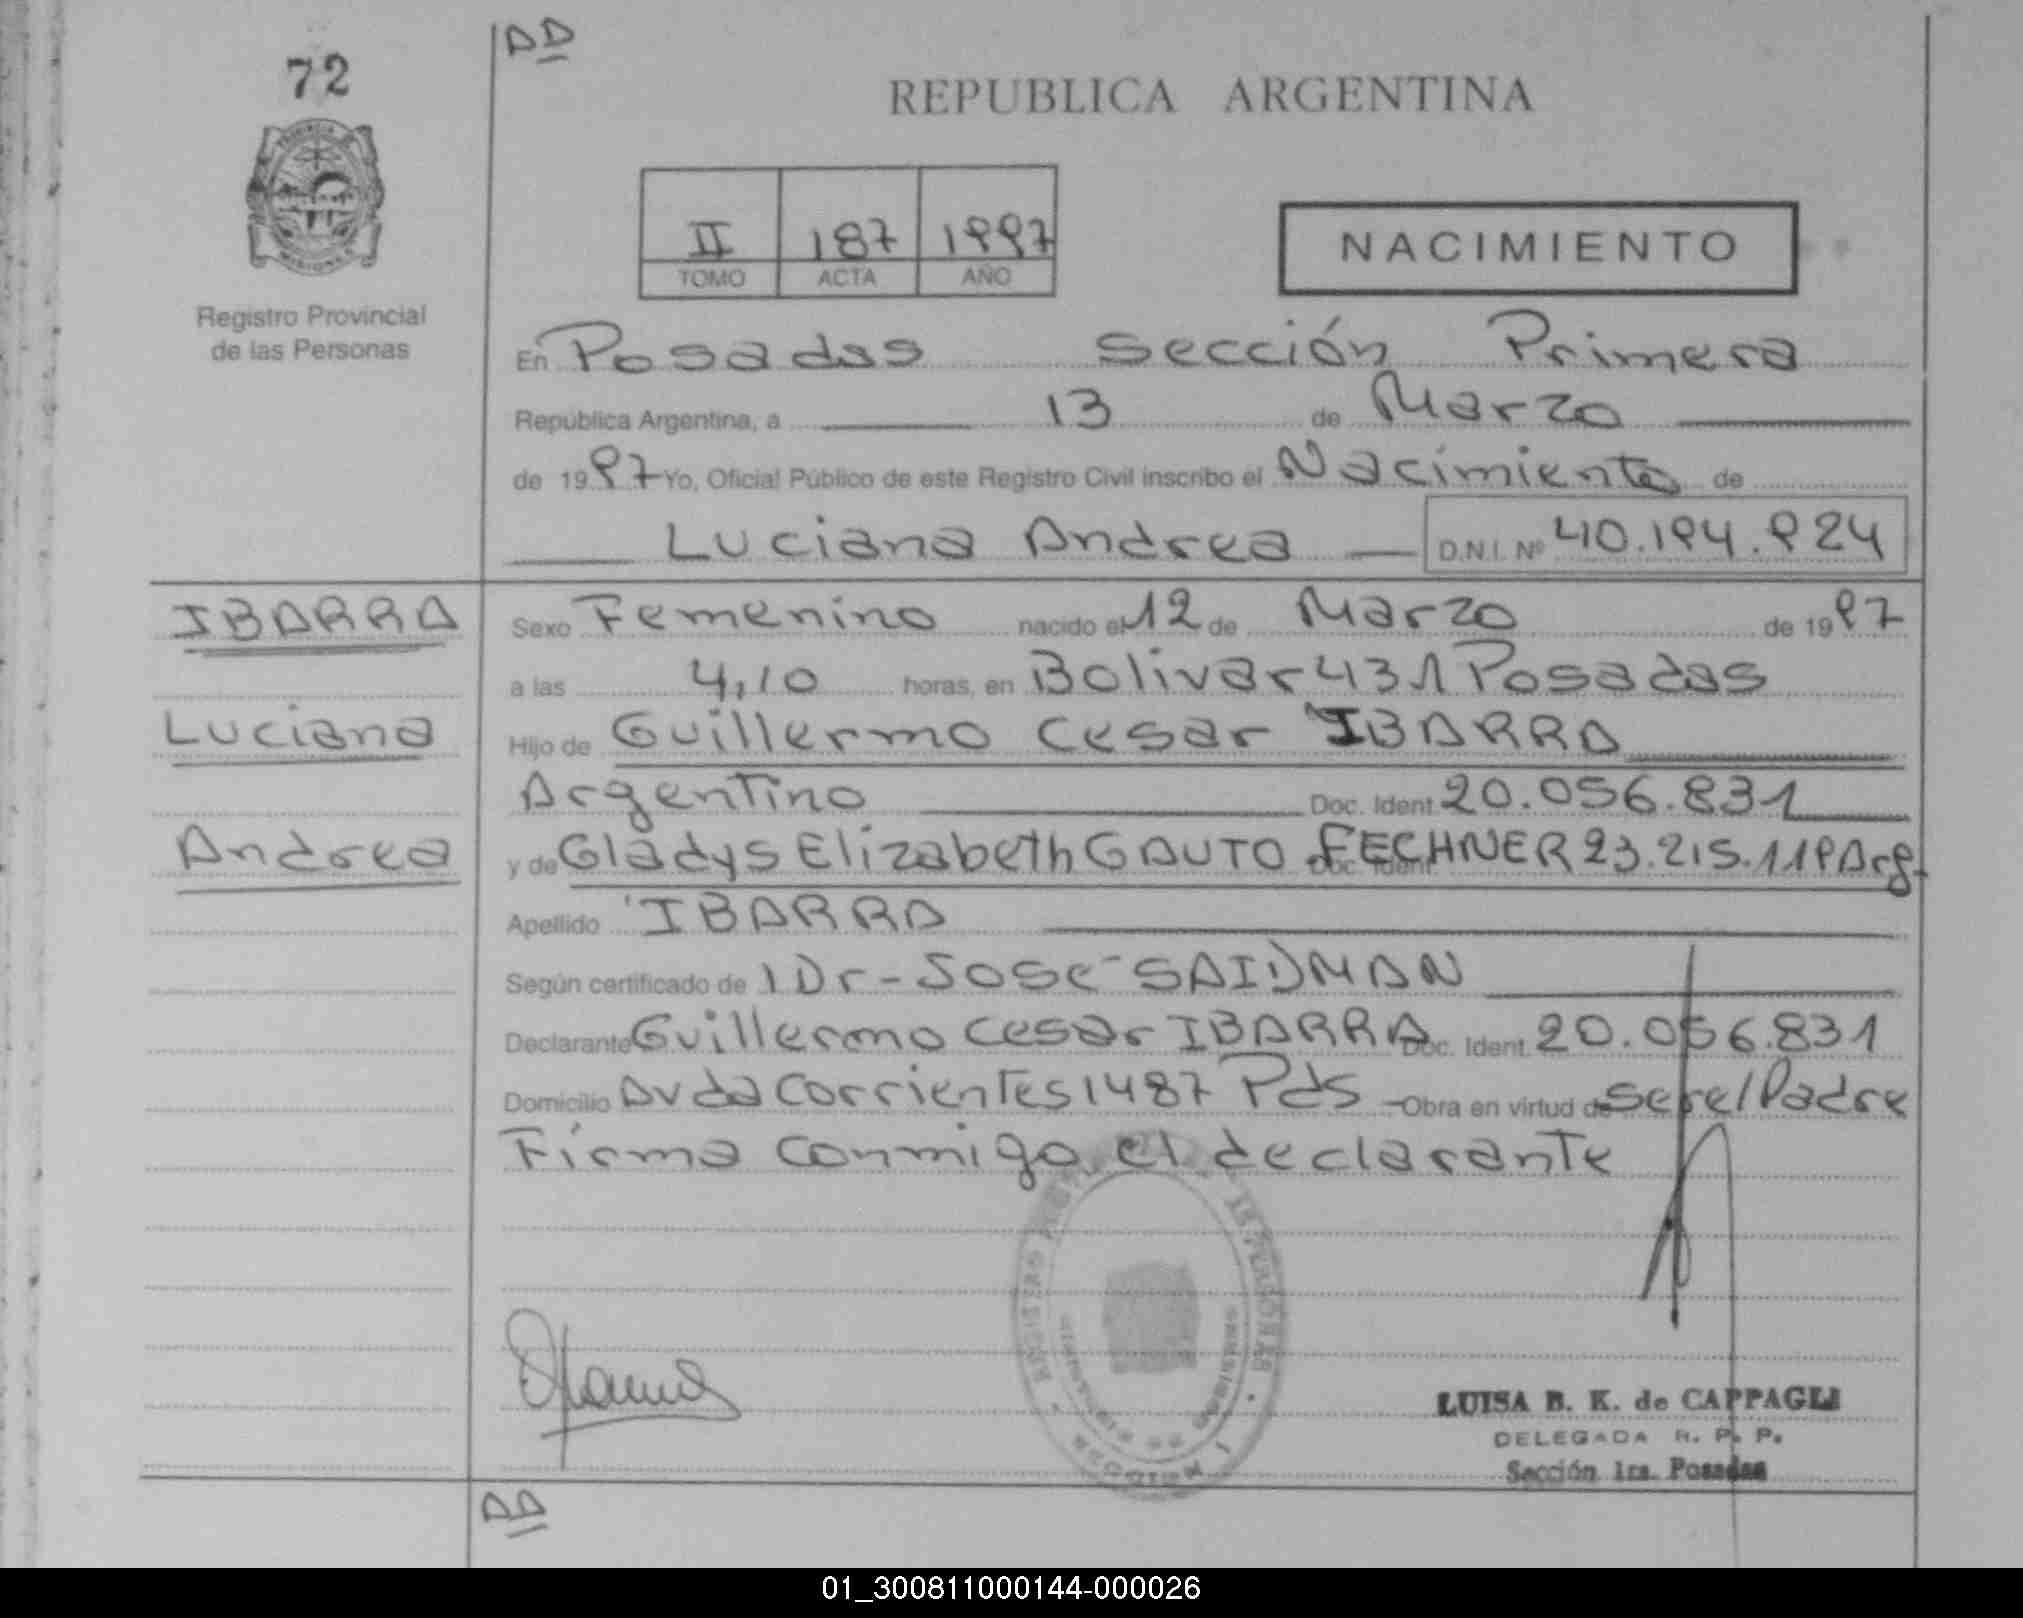 72
DD
REPUBLICA ARGENTINA
II 187 1997
TOMO ACTA AÑO
NACIMIENTO
Registro Provincial
de las Personas
En Posadas Sección Primera
República Argentina, a 13 de Marzo
de 1997 Yo, Oficial Público de este Registro Civil inscribo el Nacimiento de
Luciana Andrea D.N.I. Nº 40.194.924
IBARRA
Luciana
Andrea
Sexo Femenino nacido el 12 de Marzo de 1997
a las 4,10 horas, en Bolivar 431 Posadas
Hijo de Guillermo Cesar IBARRA
Argentino Doc. Ident. 20.056.831
y de Gladys Elizabeth GAUTO FECHNER Doc. Ident. 23.215.119 Arg.
Apellido IBARRA
Según certificado de l Dr-José SAIDMAN
Declarante Guillermo Cesar IBARRA Doc. Ident. 20.056.831
Domicilio Avda Corrientes 1487 Pds - Obra en virtud de ser el Padre
Firma conmigo el declarante
LUISA B. K. de CAPPAGLI
DELEGADA R. P. P.
Sección 1ra. Posadas
DD
01_300811000144-000026